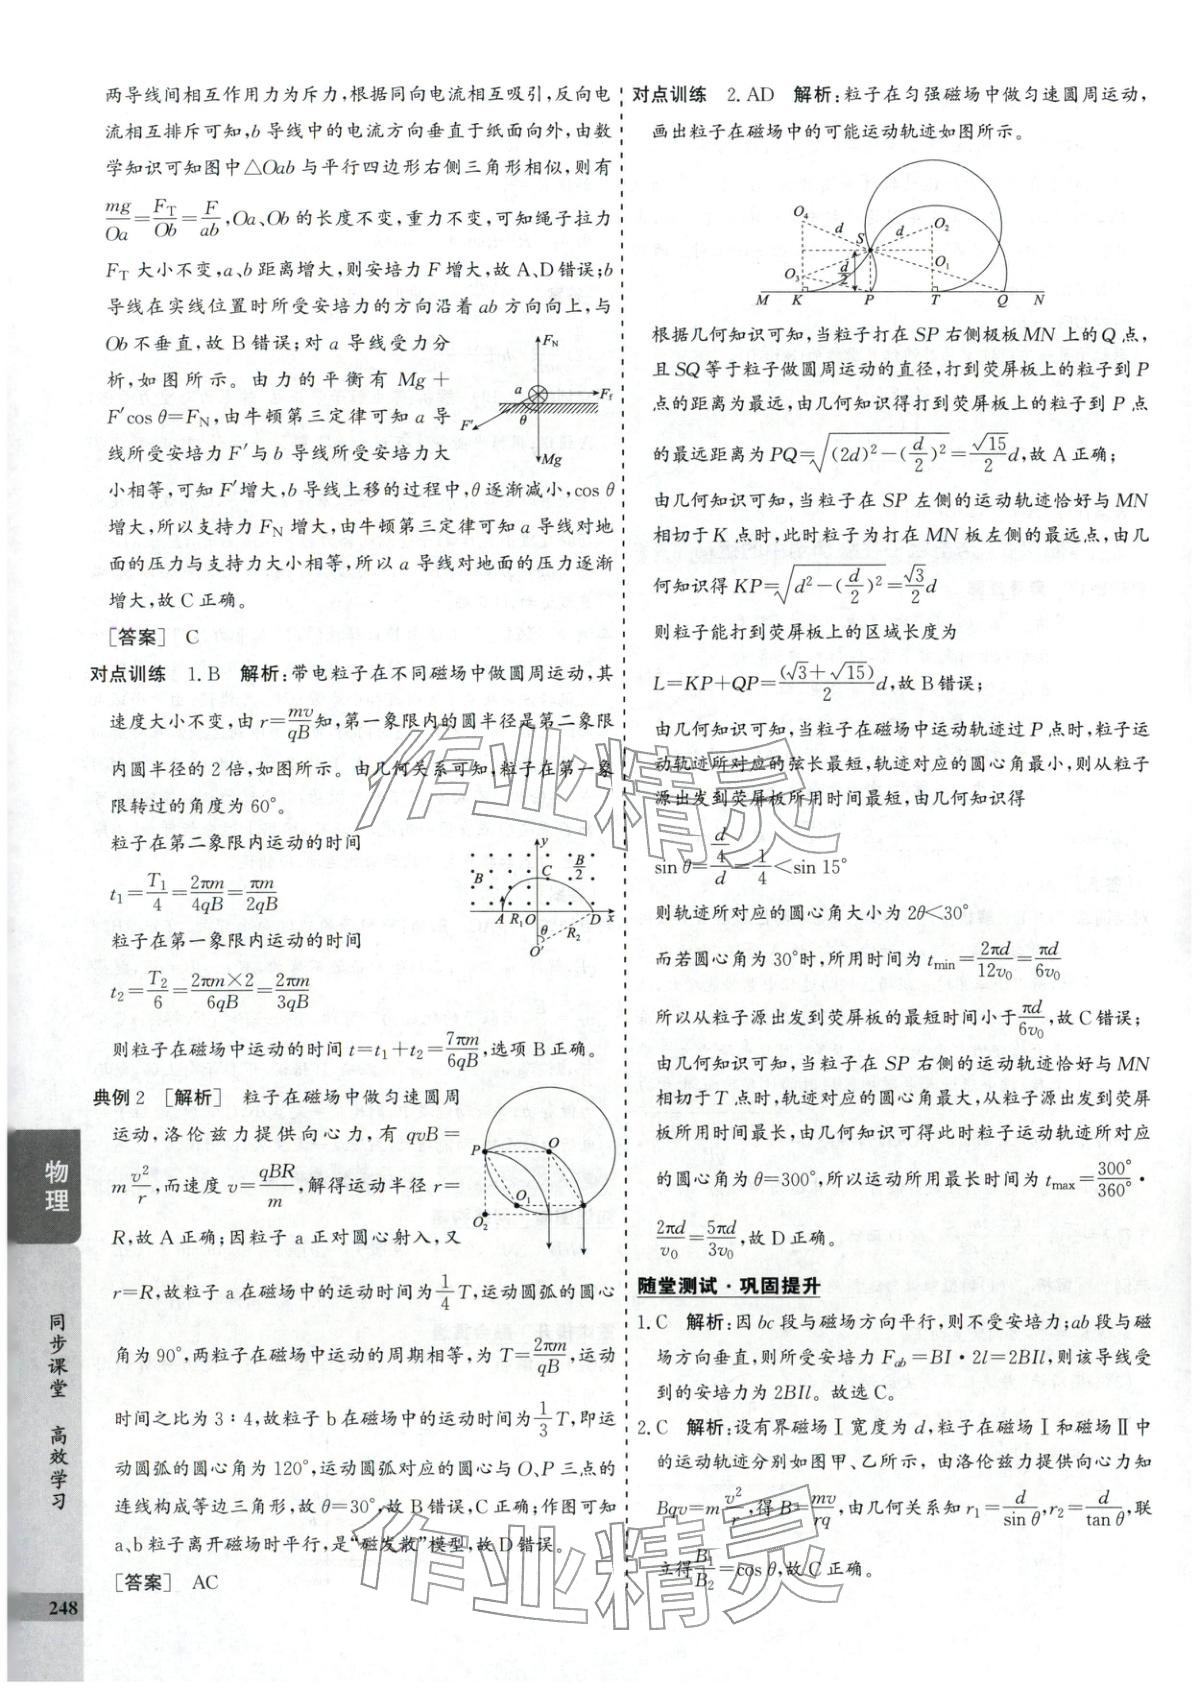 两导线间相互作用力为斥力,根据同向电流相互吸引,反向电
流相互排斥可知,b 导线中的电流方向垂直于纸面向外,由数
学知识可知图中△Oab 与平行四边形右侧三角形相似,则有
mg/Oa=F_T/Ob=F/ab,Oa、Ob 的长度不变,重力不变,可知绳子拉力
F_T 大小不变,a、b 距离增大,则安培力 F 增大,故 A、D 错误;b
导线在实线位置时所受安培力的方向沿着 ab 方向向上,与
Ob 不垂直,故 B 错误;对 a 导线受力分
析,如图所示。由力的平衡有 Mg+
F′cos θ=F_N,由牛顿第三定律可知 a 导
线所受安培力 F′与 b 导线所受安培力大
小相等,可知 F′增大,b 导线上移的过程中,θ 逐渐减小,cos θ
增大,所以支持力 F_N 增大,由牛顿第三定律可知 a 导线对地
面的压力与支持力大小相等,所以 a 导线对地面的压力逐渐
增大,故 C 正确。
F_N
a
F_f
F′
θ
Mg
[答案] C
对点训练 1.B 解析:带电粒子在不同磁场中做圆周运动,其
速度大小不变,由 r=mv/qB知,第一象限内的圆半径是第二象限
内圆半径的 2 倍,如图所示。由几何关系可知,粒子在第一象
限转过的角度为 60°。
粒子在第二象限内运动的时间
t₁=T₁/4=2πm/4qB=πm/2qB
粒子在第一象限内运动的时间
t₂=T₂/6=2πm×2/6qB=2πm/3qB
y
B C B/2
A R₁ O D x
θ R₂
O′
则粒子在磁场中运动的时间 t=t₁+t₂=7πm/6qB,选项 B 正确。
典例 2 [解析] 粒子在磁场中做匀速圆周
运动,洛伦兹力提供向心力,有 qvB=
m v²/r,而速度 v=qBR/m,解得运动半径 r=
R,故 A 正确;因粒子 a 正对圆心射入,又
P O
O₁
O₂
r=R,故粒子 a 在磁场中的运动时间为 1/4 T,运动圆弧的圆心
角为 90°,两粒子在磁场中运动的周期相等,为 T=2πm/qB,运动
时间之比为 3∶4,故粒子 b 在磁场中的运动时间为 1/3 T,即运
动圆弧的圆心角为 120°,运动圆弧对应的圆心与 O、P 三点的
连线构成等边三角形,故 θ=30°,故 B 错误,C 正确;作图可知
a、b 粒子离开磁场时平行,是“磁发散”模型,故 D 错误。
[答案] AC
对点训练 2.AD 解析:粒子在匀强磁场中做匀速圆周运动,
画出粒子在磁场中的可能运动轨迹如图所示。
O₄ d S d O₂
O₃ d/2 O₁
M K P T Q N
根据几何知识可知,当粒子打在 SP 右侧极板 MN 上的 Q 点,
且 SQ 等于粒子做圆周运动的直径,打到荧屏板上的粒子到 P
点的距离为最远,由几何知识得打到荧屏板上的粒子到 P 点
的最远距离为 PQ=√((2d)²−(d/2)²)=√15/2 d,故 A 正确;
由几何知识可知,当粒子在 SP 左侧的运动轨迹恰好与 MN
相切于 K 点时,此时粒子为打在 MN 板左侧的最远点,由几
何知识得 KP=√(d²−(d/2)²)=√3/2 d
则粒子能打到荧屏板上的区域长度为
L=KP+QP=(√3+√15)/2 d,故 B 错误;
由几何知识可知,当粒子在磁场中运动轨迹过 P 点时,粒子运
动轨迹所对应的弦长最短,轨迹对应的圆心角最小,则从粒子
源出发到荧屏板所用时间最短,由几何知识得
sin θ=(d/4)/d=1/4<sin 15°
则轨迹所对应的圆心角大小为 2θ<30°
而若圆心角为 30°时,所用时间为 t_min=2πd/12v₀=πd/6v₀
所以从粒子源出发到荧屏板的最短时间小于πd/6v₀,故 C 错误;
由几何知识可知,当粒子在 SP 右侧的运动轨迹恰好与 MN
相切于 T 点时,轨迹对应的圆心角最大,从粒子源出发到荧屏
板所用时间最长,由几何知识可得此时粒子运动轨迹所对应
的圆心角为 θ=300°,所以运动所用最长时间为 t_max=300°/360°·
2πd/v₀=5πd/3v₀,故 D 正确。
随堂测试·巩固提升
1.C 解析:因 bc 段与磁场方向平行,则不受安培力;ab 段与磁
场方向垂直,则所受安培力 F_ab=BI·2l=2BIl,则该导线受
到的安培力为 2BIl。故选 C。
2.C 解析:设有界磁场Ⅰ宽度为 d,粒子在磁场Ⅰ和磁场Ⅱ中
的运动轨迹分别如图甲、乙所示,由洛伦兹力提供向心力知
Bqv=m v²/r,得 B=mv/rq,由几何关系知 r₁=d/sin θ,r₂=d/tan θ,联
立得B₁/B₂=cos θ,故 C 正确。
物理
同步课堂 高效学习
248
作业精灵
作业精灵